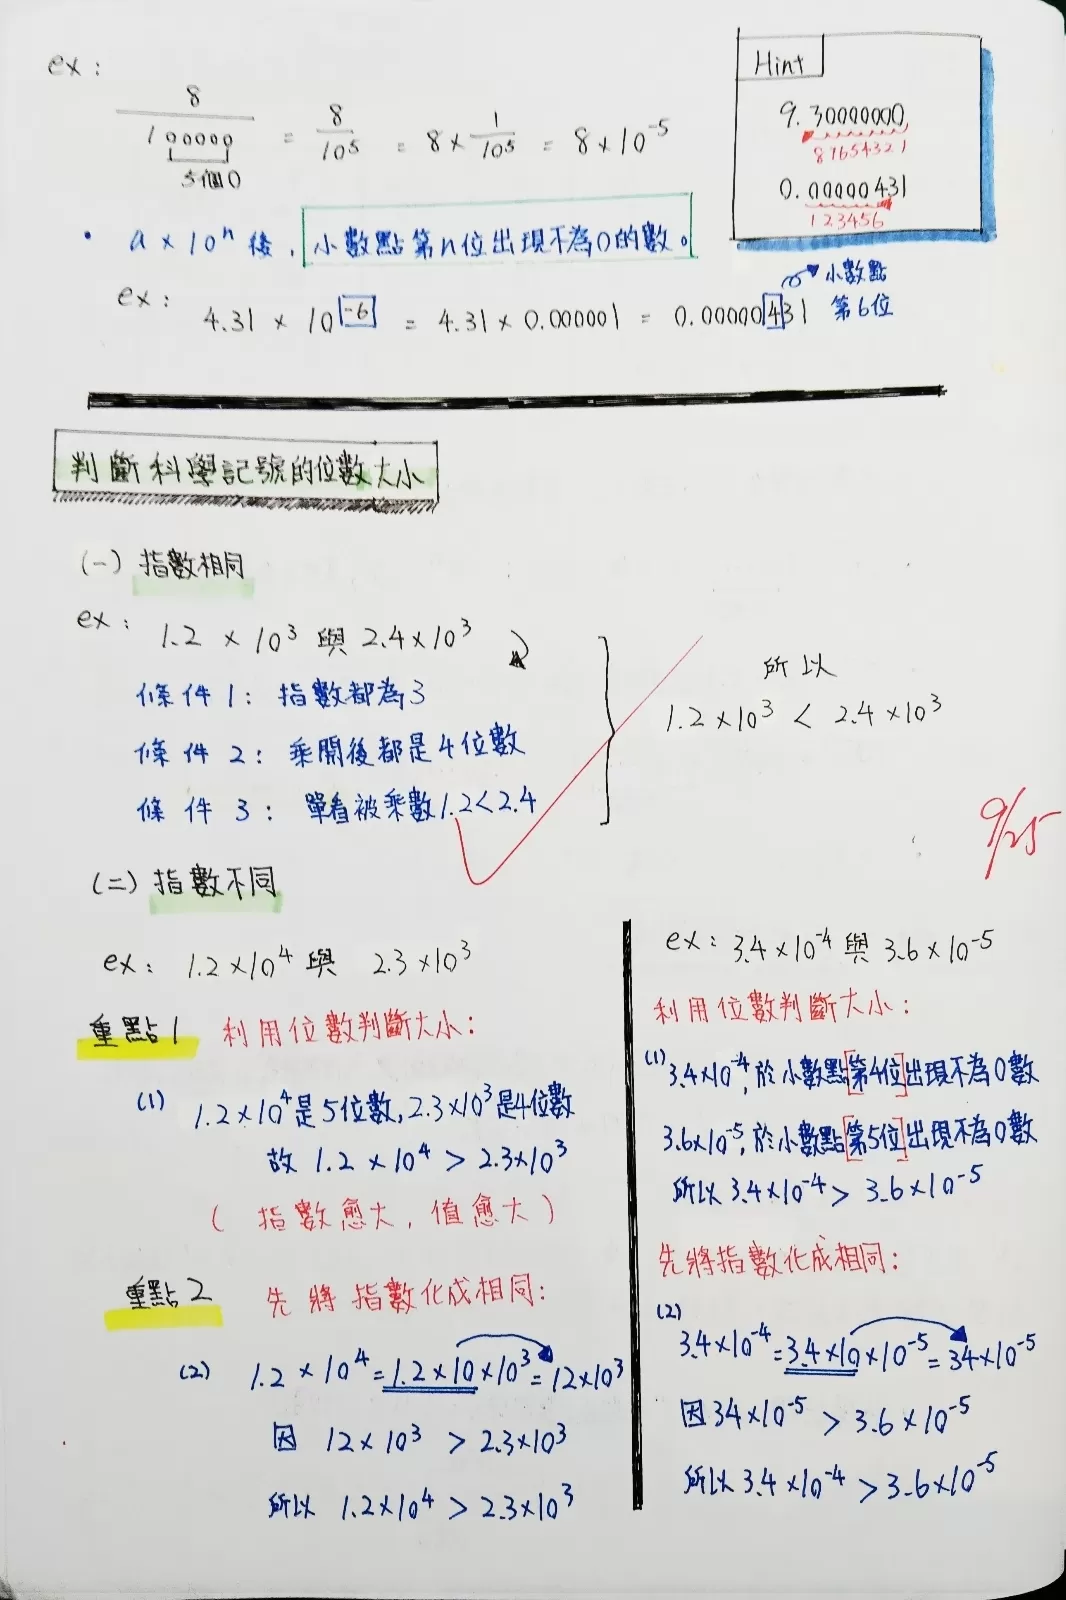 ex:
8/100000 = 8/10⁵ = 8 × 1/10⁵ = 8 × 10⁻⁵
5個0
Hint
9.30000000
87654321
0.00000431
123456
• a × 10ⁿ 後, 小數點第n位出現不為0的數。
ex: 4.31 × 10⁻⁶ = 4.31 × 0.000001 = 0.00000431
小數點
第6位
判斷科學記號的位數大小
(一) 指數相同
ex: 1.2 × 10³ 與 2.4 × 10³
條件1: 指數都為3
條件2: 乘開後都是4位數
條件3: 單看被乘數1.2<2.4
所以
1.2×10³ < 2.4×10³
9/25
(二) 指數不同
ex: 1.2×10⁴ 與 2.3×10³
重點1 利用位數判斷大小:
(1) 1.2×10⁴是5位數, 2.3×10³是4位數
故 1.2 × 10⁴ > 2.3×10³
( 指數愈大, 值愈大 )
重點2 先將指數化成相同:
(2) 1.2 × 10⁴ = 1.2×10×10³ = 12×10³
因 12×10³ > 2.3×10³
所以 1.2×10⁴ > 2.3×10³
ex: 3.4×10⁻⁴ 與 3.6×10⁻⁵
利用位數判斷大小:
(1) 3.4×10⁻⁴, 於小數點[第4位]出現不為0數
3.6×10⁻⁵, 於小數點[第5位]出現不為0數
所以 3.4×10⁻⁴ > 3.6×10⁻⁵
先將指數化成相同:
(2) 3.4×10⁻⁴ = 3.4×10×10⁻⁵ = 34×10⁻⁵
因 34×10⁻⁵ > 3.6×10⁻⁵
所以 3.4×10⁻⁴ > 3.6×10⁻⁵